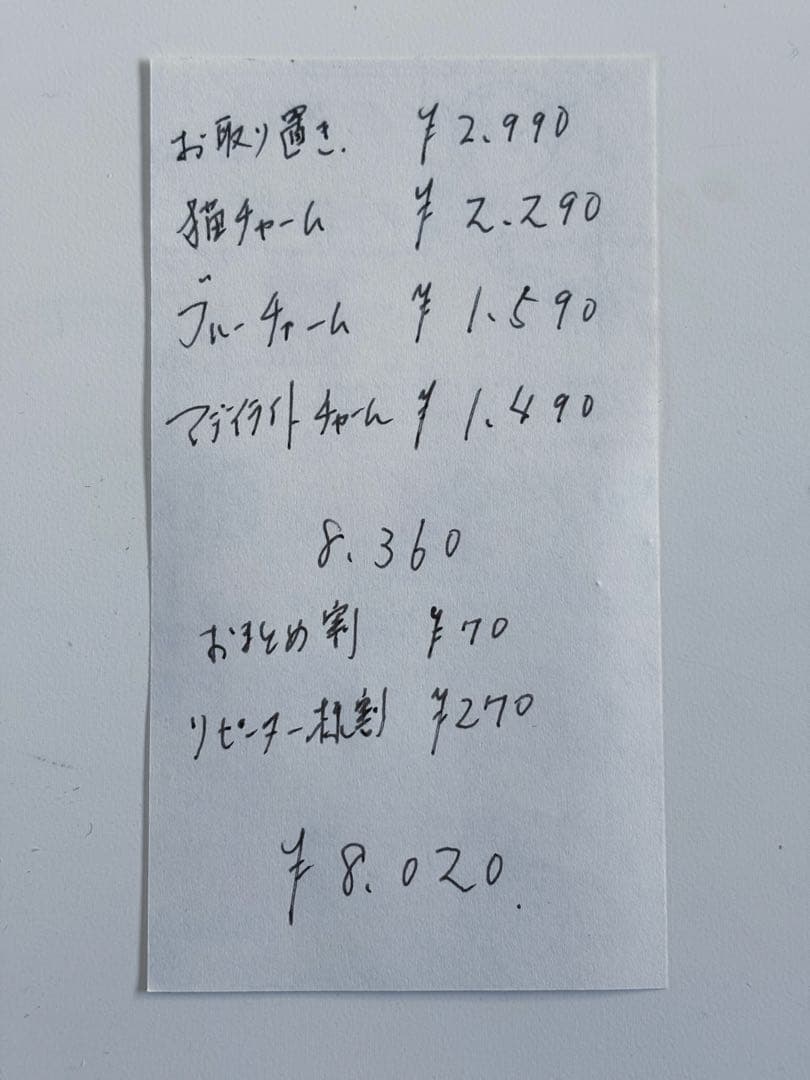 お取り置き. ¥2.990
猫チャーム ¥2.290
ブルーチャーム ¥1.590
マディライトチャーム ¥1.490
8.360
おまとめ割 ¥70
リピーター様割 ¥270
¥8.020.